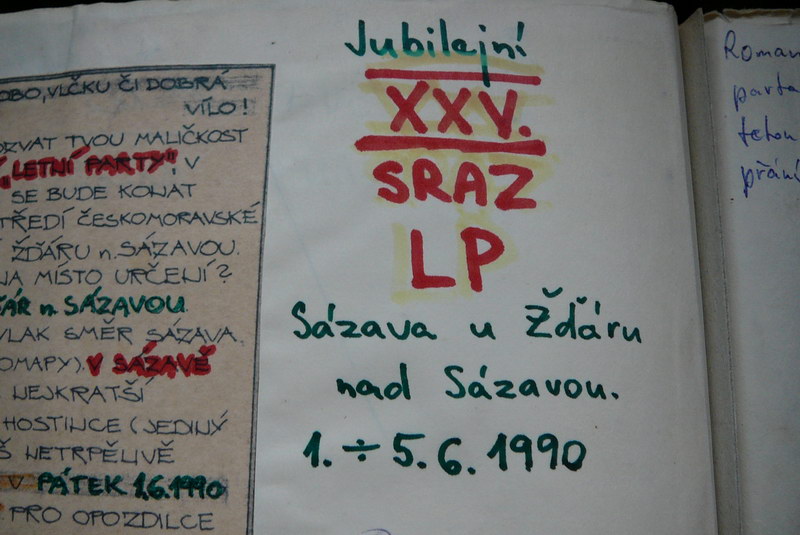 OBO, VLČKU ČI DOBRÁ
VÍLO!
OZVAT TVOU MALIČKOST
„LETNÍ PARTY", V
SE BUDE KONAT
TŘEDÍ ČESKOMORAVSKÉ
ŽĎÁRU n. SÁZAVOU.
NA MÍSTO URČENÍ?
ĎÁR n. SÁZAVOU
VLAK SMĚR SÁZAVA.
OMAPY). V SÁZAVĚ
NEJKRATŠÍ
HOSTINCE (JEDINÝ
Š NETRPĚLIVĚ
V PÁTEK 1.6.1990
PRO OPOZDILCE
Jubilejní
XXV.
SRAZ
LP
Sázava u Žďáru
nad Sázavou.
1. ÷ 5. 6. 1990
Roman
parta
přání